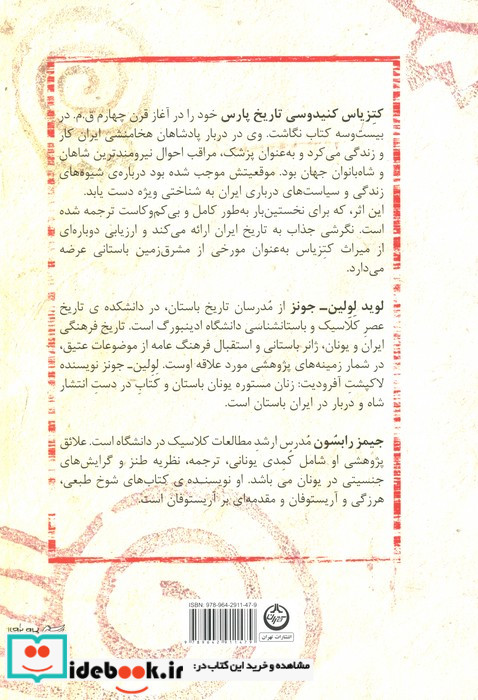 کتِزیاس کنیدوسی تاریخ پارس خود را در آغاز قرن چهارم ق.م. در
بیست‌وسه کتاب نگاشت. وی در دربار پادشاهان هخامنشی ایران کار
و زندگی می‌کرد و به‌عنوان پزشک، مراقب احوال نیرومندترین شاهان
و شاه‌بانوان جهان بود. موقعیتش موجب شده بود درباره‌ی شیوه‌های
زندگی و سیاست‌های درباری ایران به شناختی ویژه دست یابد.
این اثر، که برای نخستین‌بار به‌طور کامل و بی‌کم‌وکاست ترجمه شده
است. نگرشی جذاب به تاریخ ایران ارائه می‌کند و ارزیابی دوباره‌ای
از میراث کتِزیاس به‌عنوان مورخی از مشرق‌زمین باستانی عرضه
می‌دارد.
لوید لِوِلین‌ـ جونز از مُدرسان تاریخ باستان، در دانشکده‌ی تاریخ
عصرِ کلاسیک و باستانشناسی دانشگاه ادینبورگ است. تاریخ فرهنگی
ایران و یونان، ژانر باستانی و استقبال فرهنگ عامه از موضوعات عتیق،
در شمار زمینه‌های پژوهشی مورد علاقه اوست. لِوِلین‌ـ جونز نویسنده
لاکپشتِ آفرودیت: زنان مستوره یونان باستان و کتابِ در دستِ انتشار
شاه و دربار در ایران باستان است.
جیمز رابسُون مُدرسِ ارشدِ مطالعات کلاسیک در دانشگاه است. علائق
پژوهشی او شامل کُمدی یونانی، ترجمه، نظریه طنز و گرایش‌های
جنسیتی در یونان می باشد. او نویسنده‌ی کتاب‌های شوخ طبعی،
هرزگی و آریستوفان و مقدمه‌ای بر آریستوفان است.
ISBN: 978-964-2911-47-9
9789642911479
انتشارات تهران
idebook.ir
مشاهده و خرید این کتاب در: